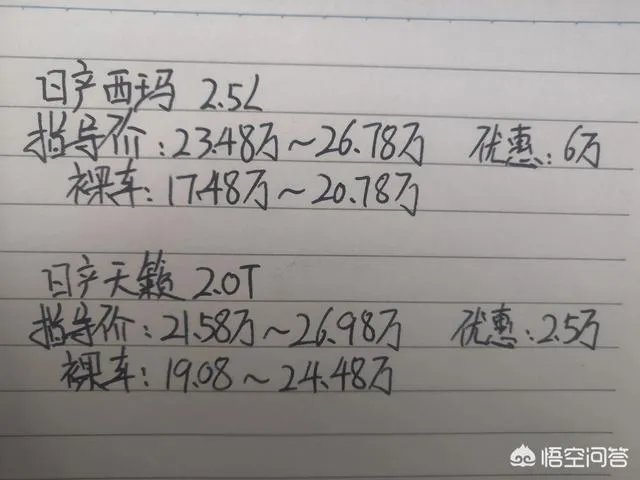 日产西玛 2.5L
指导价:23.48万~26.78万 优惠:6万
裸车:17.48万~20.78万
日产天籁 2.0T
指导价:21.58万~26.98万 优惠:2.5万
裸车:19.08~24.48万
悟空问答